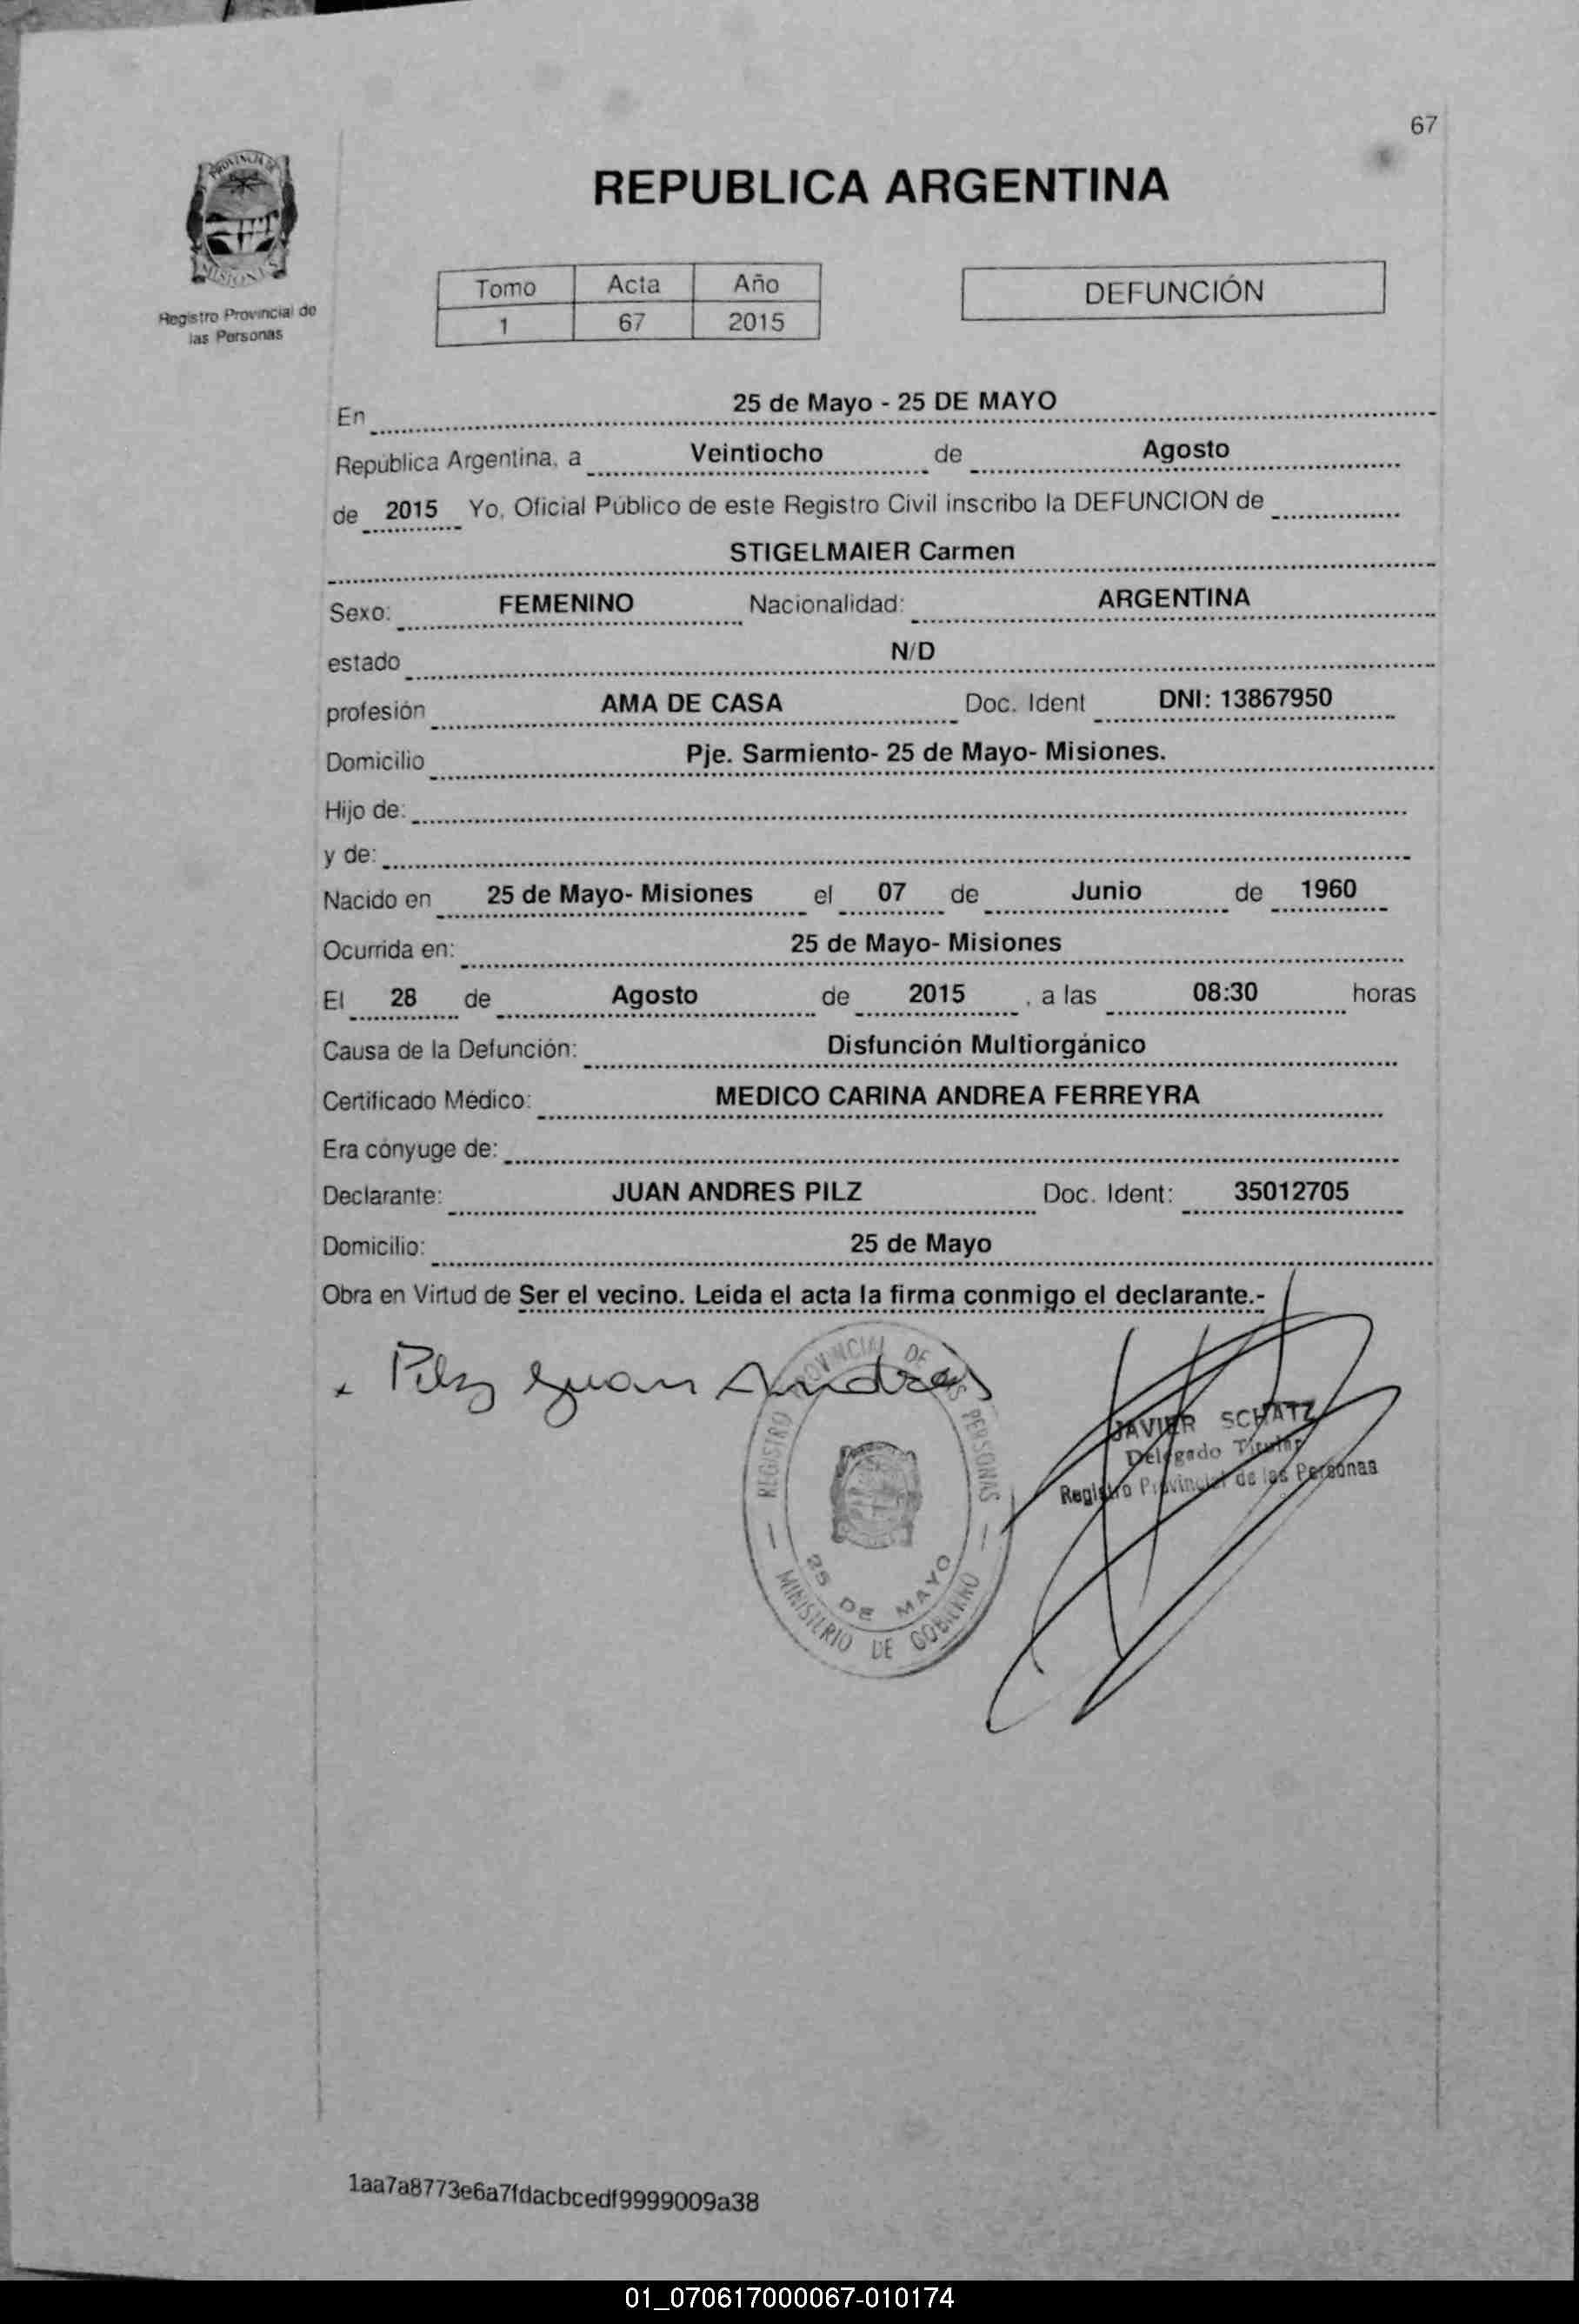 67
PROVINCIA DE
MISIONES
Registro Provincial de
las Personas
REPUBLICA ARGENTINA
Tomo Acta Año
1 67 2015
DEFUNCIÓN
En 25 de Mayo - 25 DE MAYO
República Argentina, a Veintiocho de Agosto
de 2015 Yo, Oficial Público de este Registro Civil inscribo la DEFUNCION de
STIGELMAIER Carmen
Sexo: FEMENINO Nacionalidad: ARGENTINA
estado N/D
profesión AMA DE CASA Doc. Ident DNI: 13867950
Domicilio Pje. Sarmiento- 25 de Mayo- Misiones.
Hijo de:
y de:
Nacido en 25 de Mayo- Misiones el 07 de Junio de 1960
Ocurrida en: 25 de Mayo- Misiones
El 28 de Agosto de 2015 , a las 08:30 horas
Causa de la Defunción: Disfunción Multiorgánico
Certificado Médico: MEDICO CARINA ANDREA FERREYRA
Era cónyuge de:
Declarante: JUAN ANDRES PILZ Doc. Ident: 35012705
Domicilio: 25 de Mayo
Obra en Virtud de Ser el vecino. Leída el acta la firma conmigo el declarante.-
x Pilz Juan Andres
REGISTRO PROVINCIAL DE LAS PERSONAS
25 DE MAYO
MINISTERIO DE GOBIERNO
JAVIER SCHATZ
Delegado Titular
Registro Provincial de las Personas
1aa7a8773e6a7fdacbcedf9999009a38
01_070617000067-010174